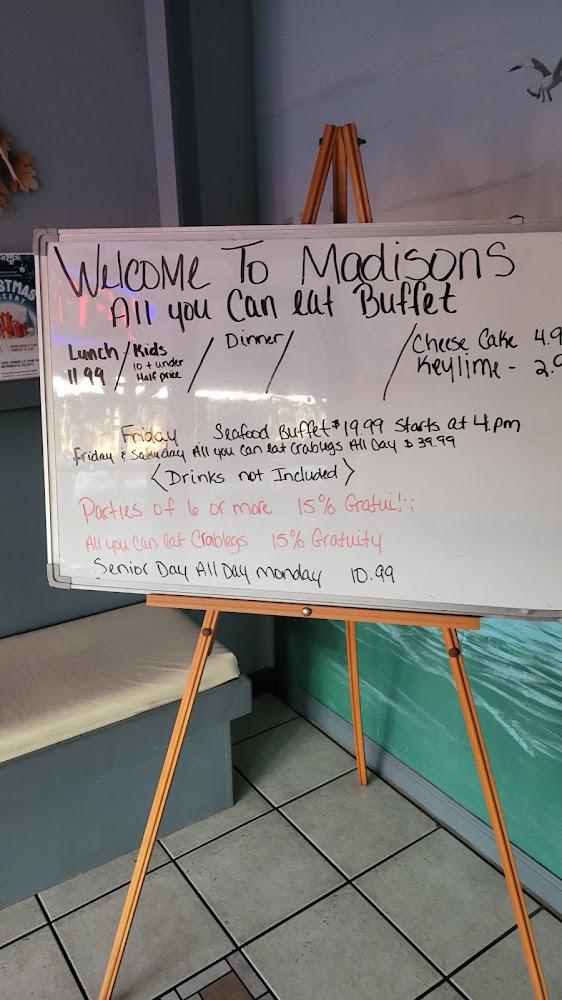 WELCOME To Madisons
All you Can eat Buffet
Lunch / Kids / Dinner / / Cheese Cake 4.9
11.99 10 + under Keylime - 2.9
Half price
Friday Seafood Buffet $19.99 Starts at 4.pm
Friday & Saturday All you can eat Crablegs All Day $39.99
< Drinks not Included >
Parties of 6 or more 15%
All you Can eat Crablegs 15% Gratuity
Senior Day All Day monday 10.99